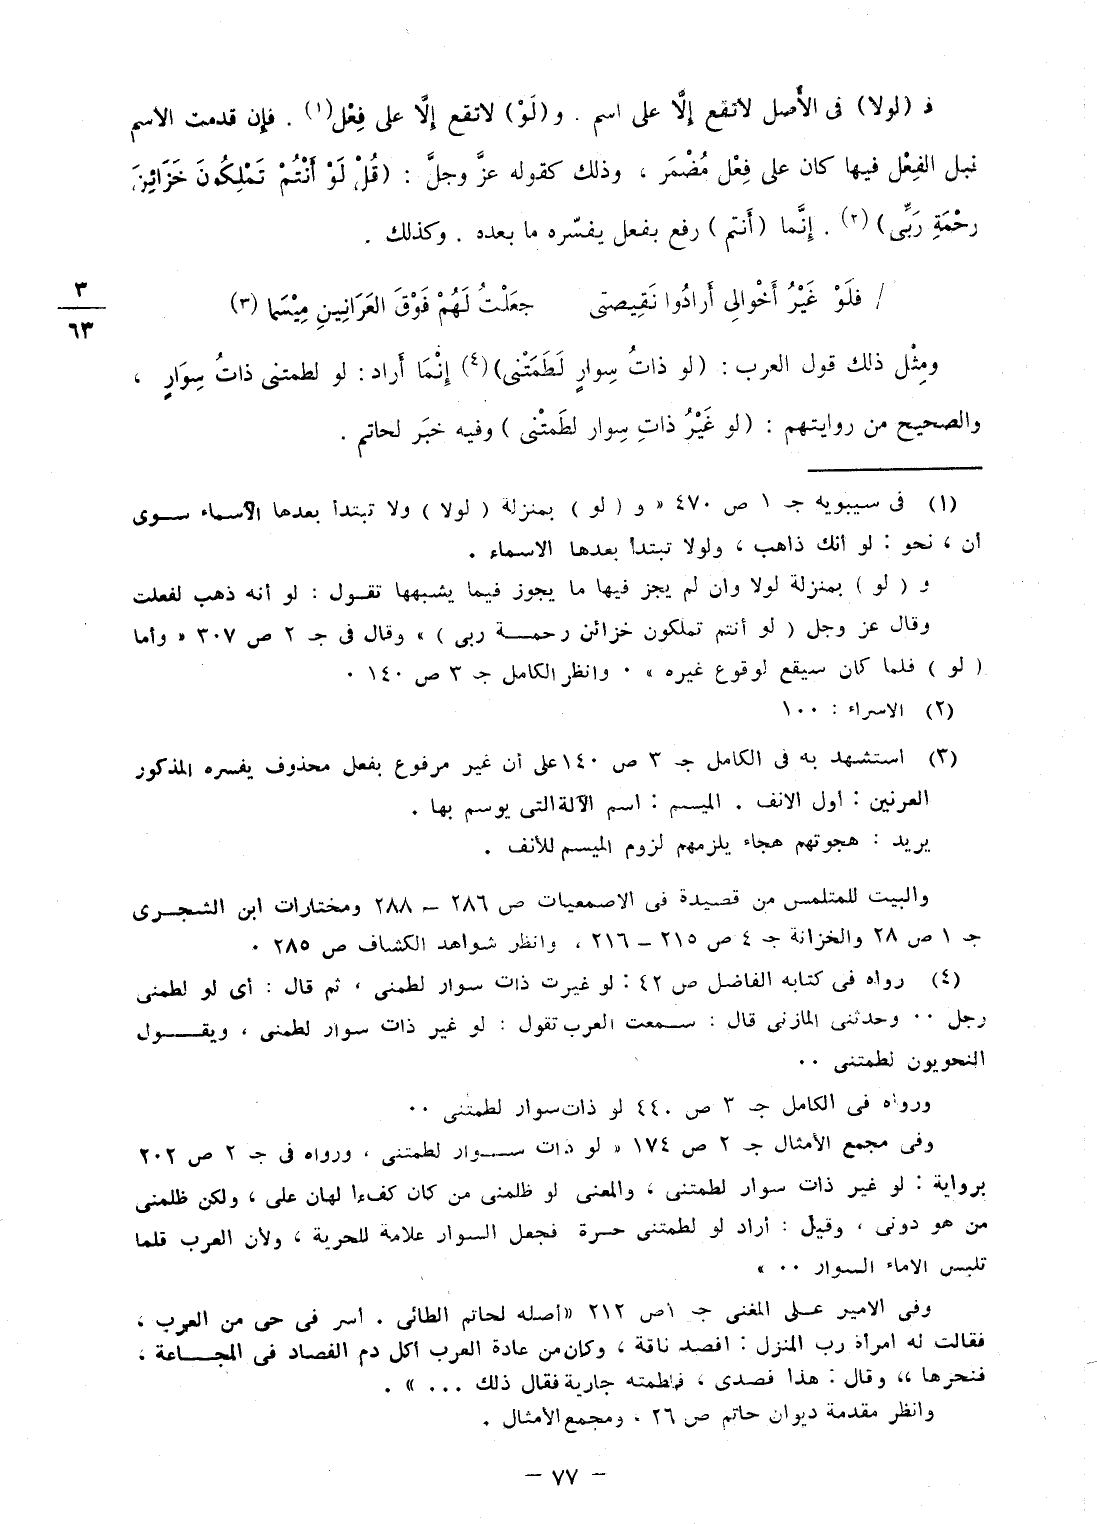 ﻓ (لولا) فى الأَصل لاتقع إلَّا على اسم . و(لَوْ) لاتقع إلَّا على فِعْل(١) . فإن قدمت الاسم
قبل الفِعْل فيها كان على فِعْل مُضْمَر ، وذلك كقوله عزَّ وجلَّ : (قُلْ لَوْ أَنْتُمْ تَمْلِكُونَ خَزَائِنَ
رحْمَةِ رَبِّى) (٢) . إنَّما (أَنتم) رفع بفعل يفسّره ما بعده . وكذلك .
٣
٦٣
/ فلَوْ غَيْرُ أَخْوالِى أَرادُوا نَقِيصتى جعَلْتُ لَهُمْ فَوْقَ العَرَانِينِ مِيْسَما (٣)
ومِثْل ذلك قول العرب : (لو ذاتُ سِوارٍ لَطَمَتْنى)(٤) إنْمَا أَراد : لو لطمتنى ذاتُ سِوَارٍ ،
والصحيح من روايتهم : (لو غَيْرُ ذاتِ سِوار لطَمتْنى) وفيه خبَر لحاتم .
(١) فى سيبويه جـ ١ ص ٤٧٠ « و ( لو ) بمنزلة ( لولا ) ولا تبتدأ بعدها الأسماء سوى
أن ، نحو : لو أنك ذاهب ، ولولا تبتدأ بعدها الاسماء .
و ( لو ) بمنزلة لولا وان لم يجز فيها ما يجوز فيما يشبهها تقول : لو أنه ذهب لفعلت
وقال عز وجل ( لو أنتم تملكون خزائن رحمة ربى ) » وقال فى جـ ٢ ص ٣٠٧ « وأما
( لو ) فلما كان سيقع لوقوع غيره » ٠ وانظر الكامل جـ ٣ ص ١٤٠ ٠
(٢) الاسراء : ١٠٠
(٣) استشهد به فى الكامل جـ ٣ ص ١٤٠ على أن غير مرفوع بفعل محذوف يفسره المذكور
العرنين : أول الانف . الميسم : اسم الآلة التى يوسم بها .
يريد : هجوتهم هجاء يلزمهم لزوم الميسم للأنف .
والبيت للمتلمس من قصيدة فى الاصمعيات ص ٢٨٦ – ٢٨٨ ومختارات ابن الشجرى
جـ ١ ص ٢٨ والخزانة جـ ٤ ص ٢١٥ – ٢١٦ ، وانظر شواهد الكشاف ص ٢٨٥ ٠
(٤) رواه فى كتابه الفاضل ص ٤٢ : لو غيرت ذات سوار لطمنى ، ثم قال : أى لو لطمنى
رجل ٠٠ وحدثنى المازنى قال : سمعت العرب تقول : لو غير ذات سوار لطمنى ، ويقول
النحويون لطمتنى ٠٠
ورواه فى الكامل جـ ٣ ص ٤٤٠ لو ذات سوار لطمتنى ٠٠
وفى مجمع الأمثال جـ ٢ ص ١٧٤ « لو ذات سوار لطمتنى ، ورواه فى جـ ٢ ص ٢٠٢
برواية : لو غير ذات سوار لطمتنى ، والمعنى لو ظلمنى من كان كفءا لهان على ، ولكن ظلمنى
من هو دونى ، وقيل : أراد لو لطمتنى حرة فجعل السوار علامة للحرية ، ولأن العرب قلما
تلبس الاماء السوار ٠٠ »
وفى الامير على المغنى جـ ١ ص ٢١٢ «أصله لحاتم الطائى . أسر فى حى من العرب ،
فقالت له امرأة رب المنزل : افصد ناقة ، وكان من عادة العرب أكل دم الفصاد فى المجاعة ،
فنحرها ،، وقال : هذا فصدى ، فلطمته جارية فقال ذلك ... » .
وانظر مقدمة ديوان حاتم ص ٢٦ ، ومجمع الأمثال .
– ٧٧ –